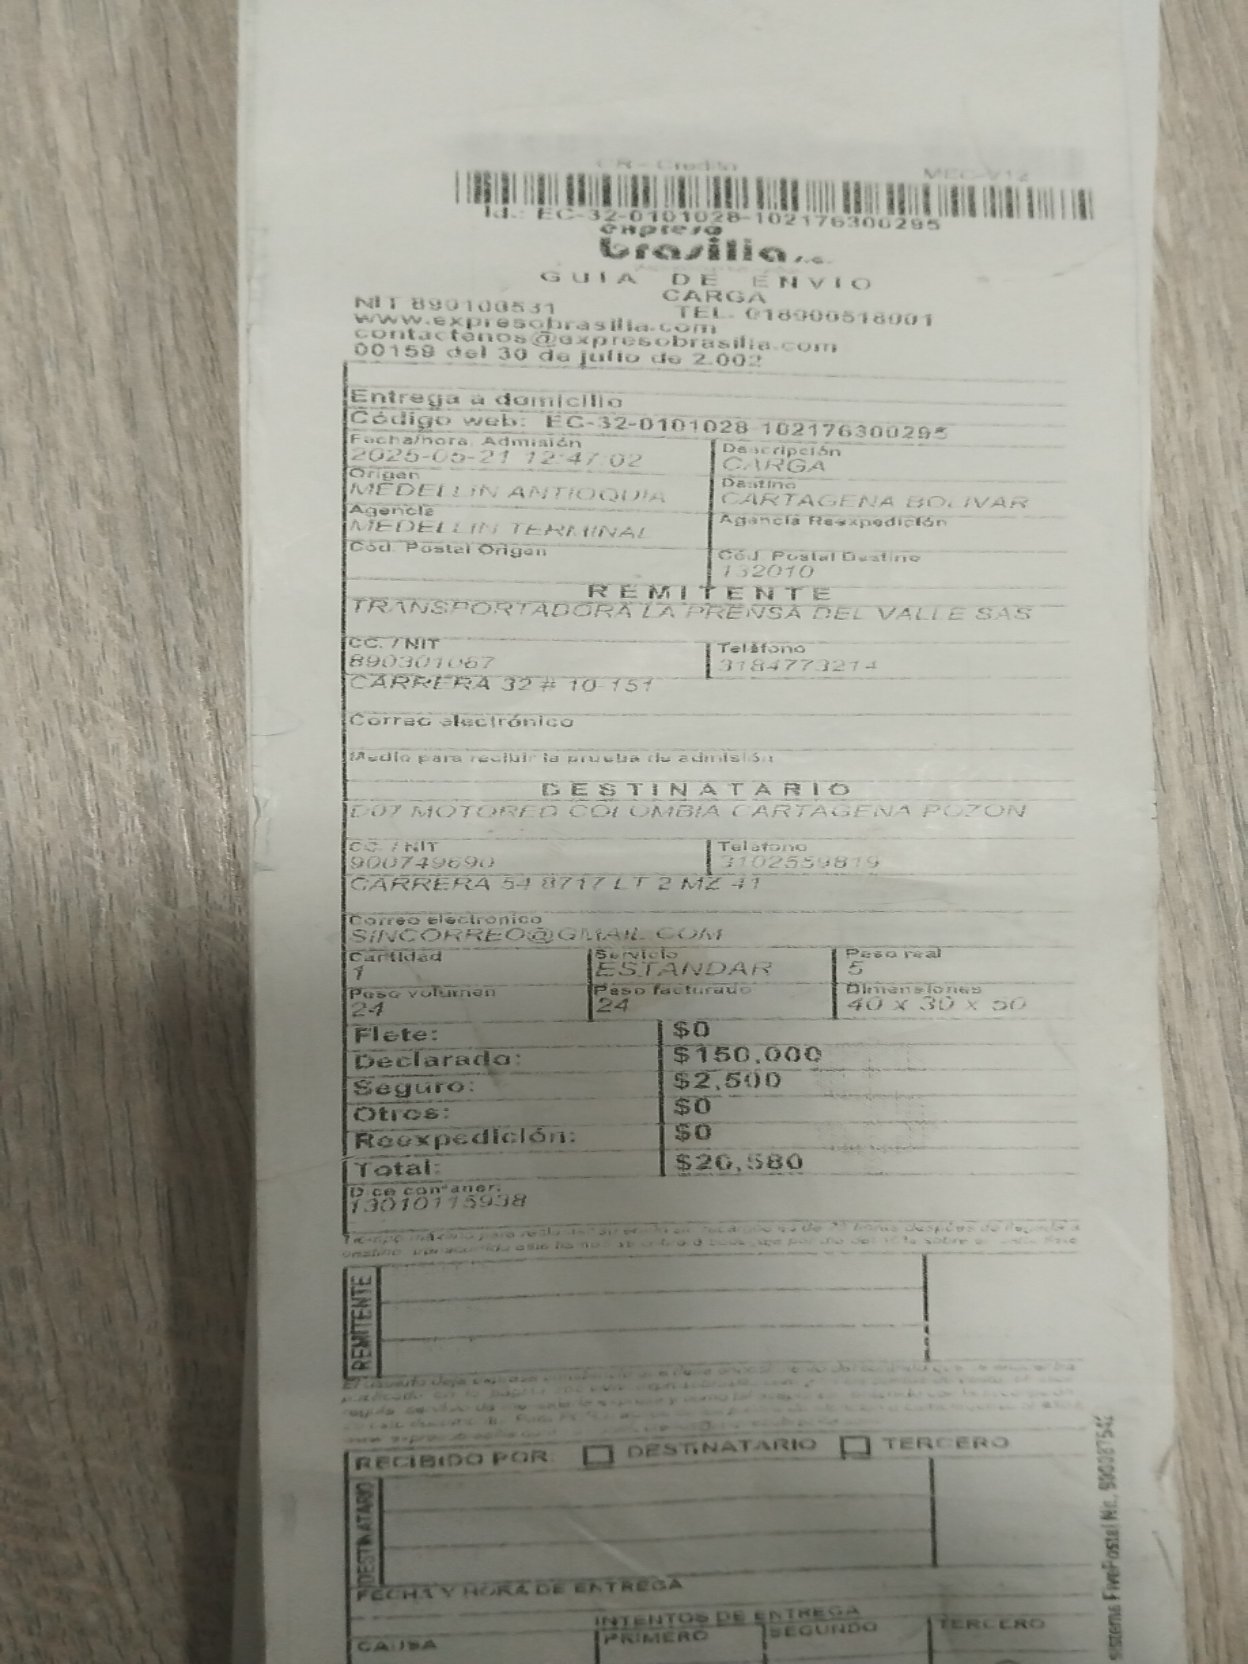 CR - Credito
MEC-V12
Id.: EC-32-0101028-102176300295
expreso
brasilia s.a.
GUIA DE ENVIO
CARGA
NIT 890100531
TEL. 018000518001
www.expresobrasilia.com
contactenos@expresobrasilia.com
00159 del 30 de julio de 2.002
Entrega a domicilio
Código web: EC-32-0101028-102176300295
Fecha/hora Admisión
2025-05-21 12:47:02
Descripción
CARGA
Origen
MEDELLIN ANTIOQUIA
Destino
CARTAGENA BOLIVAR
Agencia
MEDELLIN TERMINAL
Agencia Reexpedición
Cód. Postal Origen
Cód. Postal Destino
132010
REMITENTE
TRANSPORTADORA LA PRENSA DEL VALLE SAS
CC. / NIT
890301067
Teléfono
3184773214
CARRERA 32 # 10-151
Correo electrónico
Medio para recibir la prueba de admisión
DESTINATARIO
D07 MOTORED COLOMBIA CARTAGENA POZON
CC. / NIT
900749690
Teléfono
3102559819
CARRERA 54 8717 LT 2 MZ 41
Correo electrónico
SINCORREO@GMAIL.COM
Cantidad
1
Servicio
ESTANDAR
Peso real
5
Peso volumen
24
Peso facturado
24
Dimensiones
40 x 30 x 50
Flete: $0
Declarado: $150,000
Seguro: $2,500
Otros: $0
Reexpedición: $0
Total: $20,580
Dice contener:
13010115938
REMITENTE
RECIBIDO POR: DESTINATARIO TERCERO
DESTINATARIO
FECHA Y HORA DE ENTREGA
INTENTOS DE ENTREGA
CAUSA PRIMERO SEGUNDO TERCERO
sistema FivePostal Nit.